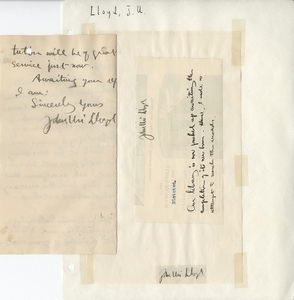 Lloyd, J. U.
tution will be of great
service just now.
Awaiting your
I am:
Sincerely Yours
John Uri Lloyd
John Uri Lloyd
Our library is now packed up awaiting the
completion of its new home. Hence, I made no
attempt to search the records.
John Uri Lloyd